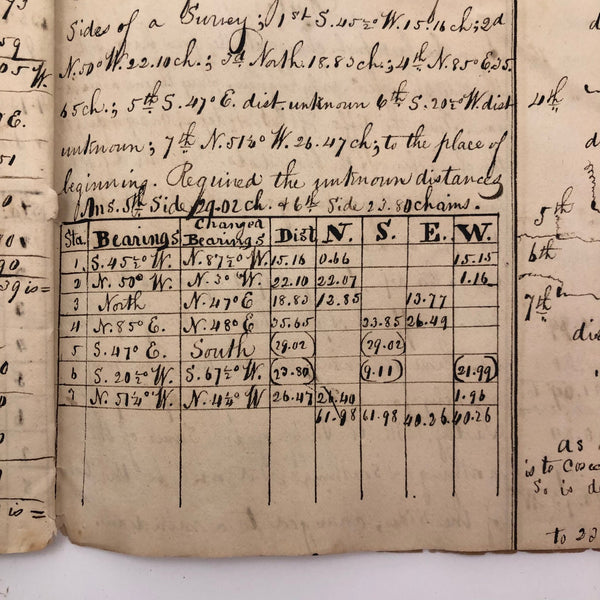 73
59
05 W.
E.
51
0
0
90
39 is =
0
0
is =
Sides of a Survey; 1st S. 45½° W. 15.16 ch; 2d
N. 50° W. 22.10 ch.; 3d North. 18.83 ch.; 4th N. 85° E. 35.
65 ch.; 5th S. 47° E. dist. unknown 6th S. 20½° W. dist
unknown; 7th N. 51¼° W. 26.47 ch; to the place of
beginning. Required the unknown distances
Ans. 5th Side 29.02 ch. & 6th Side 23.80 chains.
Sta. Bearings Changed Bearings Dist N. S. E. W.
1 S. 45½° W. N. 87½° W. 15.16 0.66 15.15
2 N. 50° W. N. 3° W. 22.10 22.07 1.16
3 North N. 47° E 18.83 12.85 13.77
4 N. 85° E. N. 48° E 35.65 23.85 26.49
5 S. 47° E. South (29.02) (29.02)
6 S. 20½° W. S. 67½° W. (23.80) (9.11) (21.99)
7 N. 51¼° W. N. 4¼° W 26.47 26.40 1.96
61.98 61.98 40.26 40.26
d
4th
d
5th
6th
7th
dis
as
is to Cosec
So is d
to 23